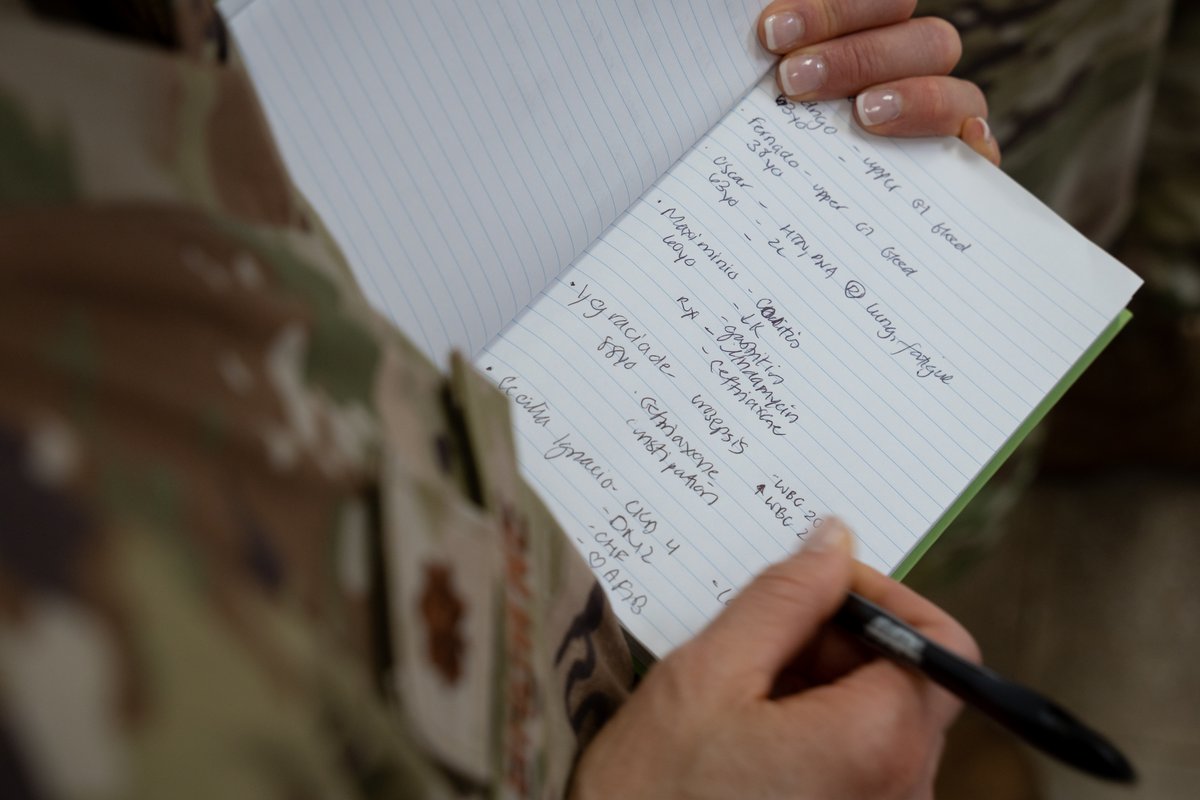 63yo - upper GI bleed
-
· Fernado - upper GI bleed
38yo
· Oscar - HTN, PNA Ⓡ lung, fatigue
63yo - 2L
-
· Maximinio - Colitis
60yo - ↓K
- gastritis
Rx - clindamycin
- Ceftriaxone
· Ygraciade - urosepsis
88yo · Ceftriaxone - WBC
constipation ↑ WBC
· Cecilia Ignacio - CKD 4
- DM2
- CHF
- ♡ AFIB